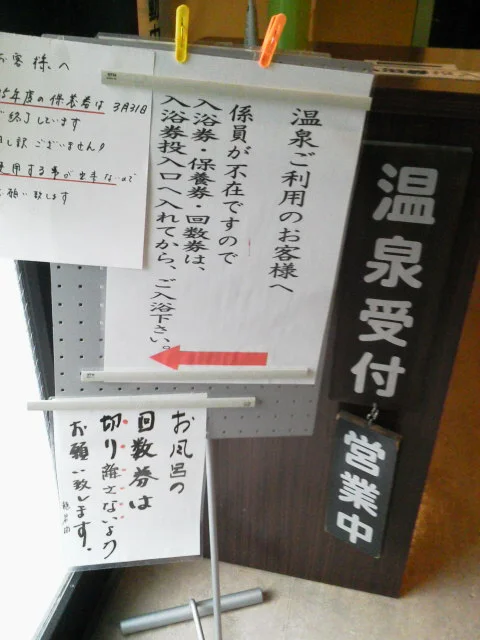 お客様へ
25年度の保養券は 3月31日
で終了しています
申し訳ございません!
使用する事が出来ないので
お願い致します
温泉ご利用のお客様へ
係員が不在ですので
入浴券・保養券・回数券は、
入浴券投入口へ入れてから、ご入浴下さい。
お風呂の
回数券は
切り離さないよう
お願い致します.
温泉受付
営業中